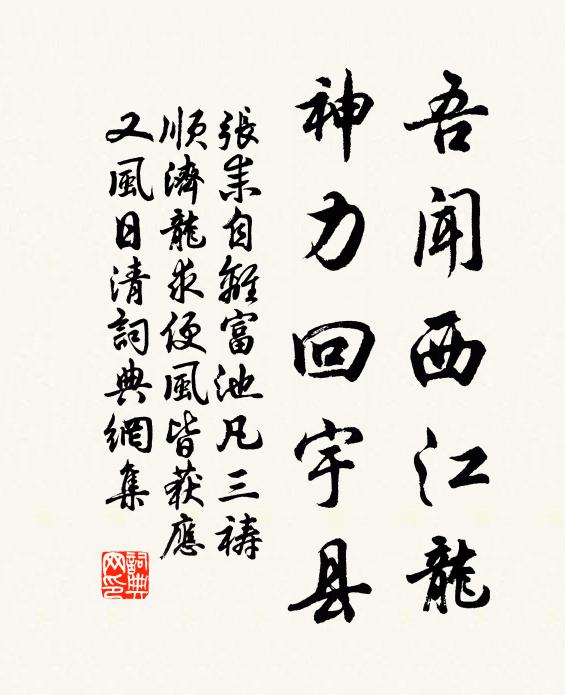 吾闻西江龍
神力回宇县
張耒自離富池凡三禱
順濟龍求便風皆获應
又風日清詞典網集
詞典网印